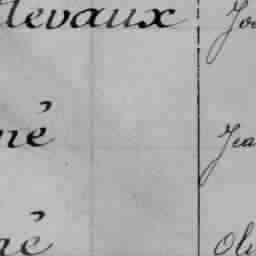 levaux Jos
né Jea
né Oli